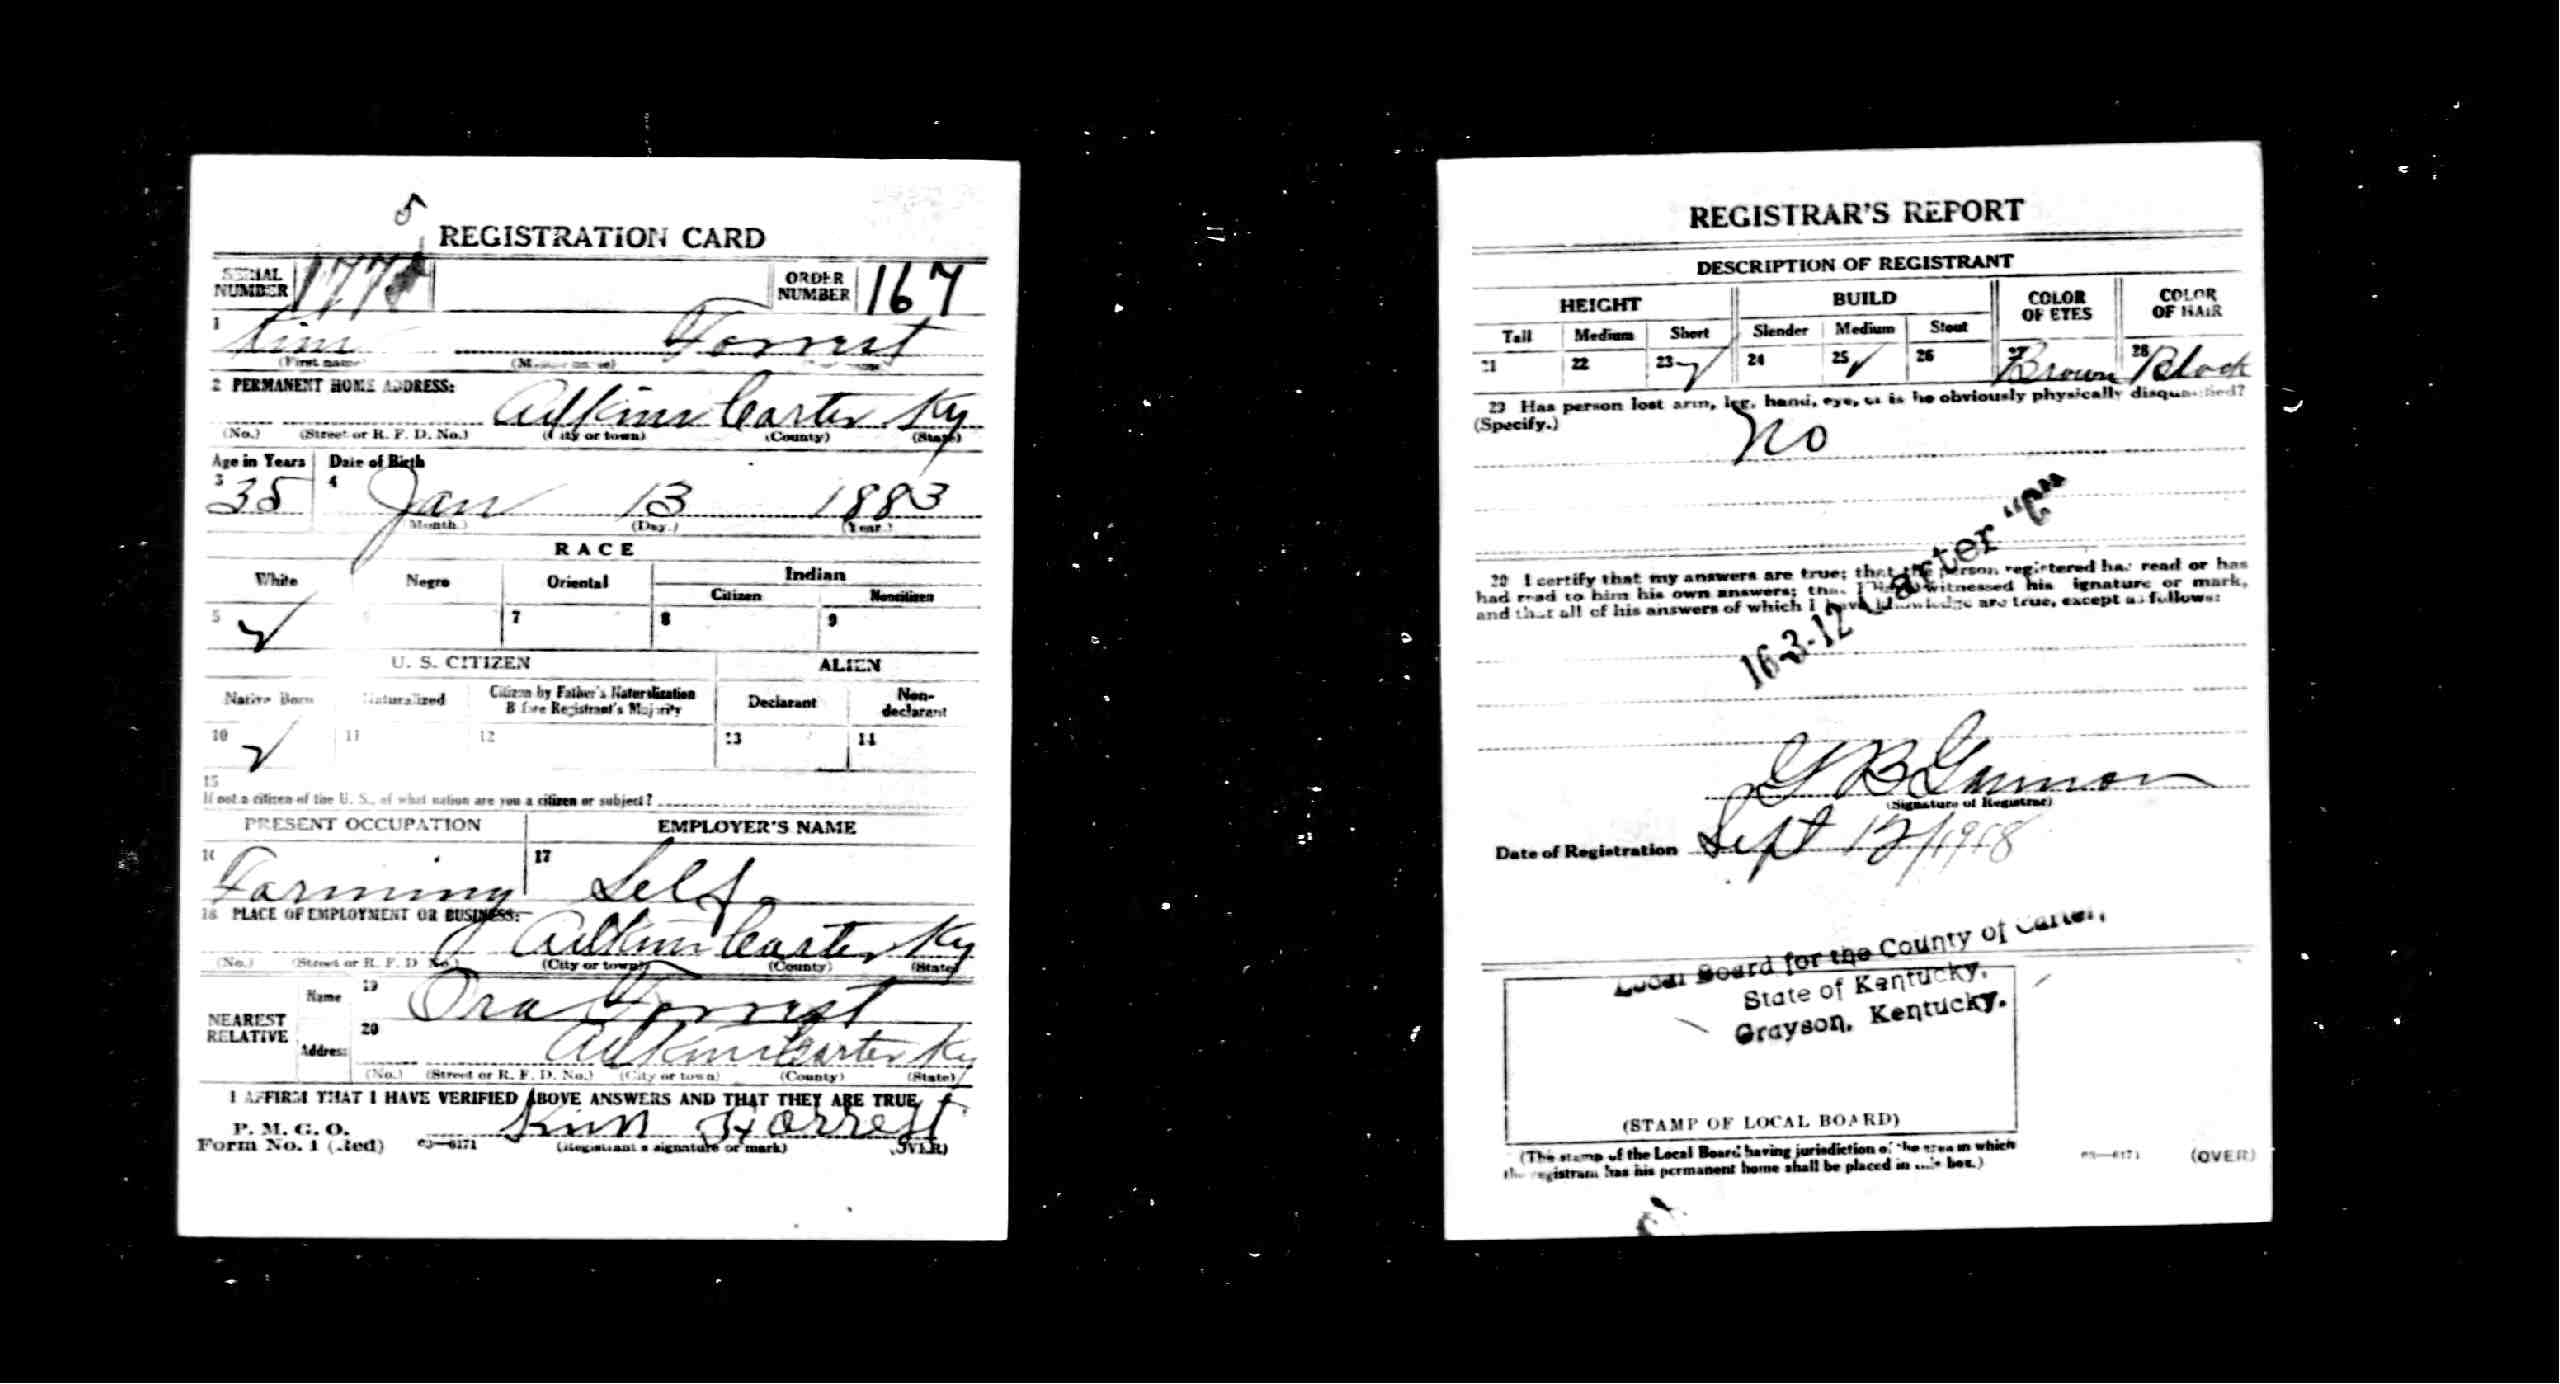 5
REGISTRATION CARD
SERIAL NUMBER 177 ORDER NUMBER 167
1 Kim Forrest
(First name) (Middle name)
2 PERMANENT HOME ADDRESS:
Adkins Carter Ky
(No.) (Street or R. F. D. No.) (City or town) (County) (State)
Age in Years Date of Birth
3 35 4 Jan 13 1883
(Month.) (Day.) (Year.)
RACE
White Negro Oriental Indian
Citizen Noncitizen
5 ✓ 7 8 9
U. S. CITIZEN ALIEN
Native Born Naturalized Citizen by Father's Naturalization Before Registrant's Majority Declarant Non-declarant
10 ✓ 11 12 13 14
15
If not a citizen of the U. S., of what nation are you a citizen or subject?
PRESENT OCCUPATION EMPLOYER'S NAME
16 Farming 17 Self
18 PLACE OF EMPLOYMENT OR BUSINESS:
Adkins Carter Ky
(No.) (Street or R. F. D. No.) (City or town) (County) (State)
NEAREST RELATIVE
Name 19 Ora Forrest
Address 20 Adkins Carter Ky
(No.) (Street or R. F. D. No.) (City or town) (County) (State)
I AFFIRM THAT I HAVE VERIFIED ABOVE ANSWERS AND THAT THEY ARE TRUE
P. M. G. O.
Form No. 1 (Red) 03—6171 Kim Forrest
(Registrant's signature or mark) (OVER)
REGISTRAR'S REPORT
DESCRIPTION OF REGISTRANT
HEIGHT BUILD COLOR OF EYES COLOR OF HAIR
Tall Medium Short Slender Medium Stout
21 22 23 ✓ 24 25 ✓ 26 27 Brown 28 Black
29 Has person lost arm, leg, hand, eye, or is he obviously physically disqualified?
(Specify.) No
30 I certify that my answers are true; that the person registered has read or has
had read to him his own answers; that I have witnessed his signature or mark,
and that all of his answers of which I have knowledge are true, except as follows:
16-3-12 Carter "C"
G B
(Signature of Registrar)
Date of Registration Sept 12/1918
Local Board for the County of Carter,
State of Kentucky,
Grayson, Kentucky.
(STAMP OF LOCAL BOARD)
(The stamp of the Local Board having jurisdiction of the area in which
the registrant has his permanent home shall be placed in this box.)
03—6171 (OVER)